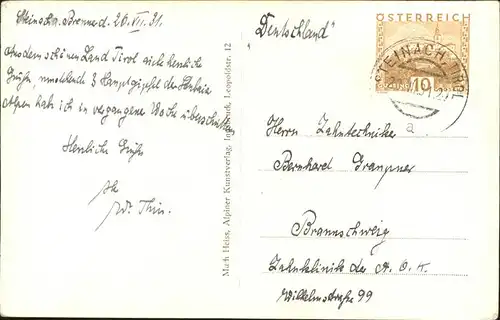 Steinach a. Brenner d. 20. VII. 31.
Aus dem schönen Land Tirol recht herzliche
Grüße, 3 Hauptgipfel der
Alpen hab ich in vergangener Woche überschritten
Herzliche Grüße
Math Heiss, Alpiner Kunstverlag, Innsbruck, Leopoldstr. 12
"Deutschland"
ÖSTERREICH
STEINACH, TIROL
10
a
Herrn Zahntechniker
Bernhard
Braunschweig
Zahnklinik der A. O. K.
Wilhelmstraße 99